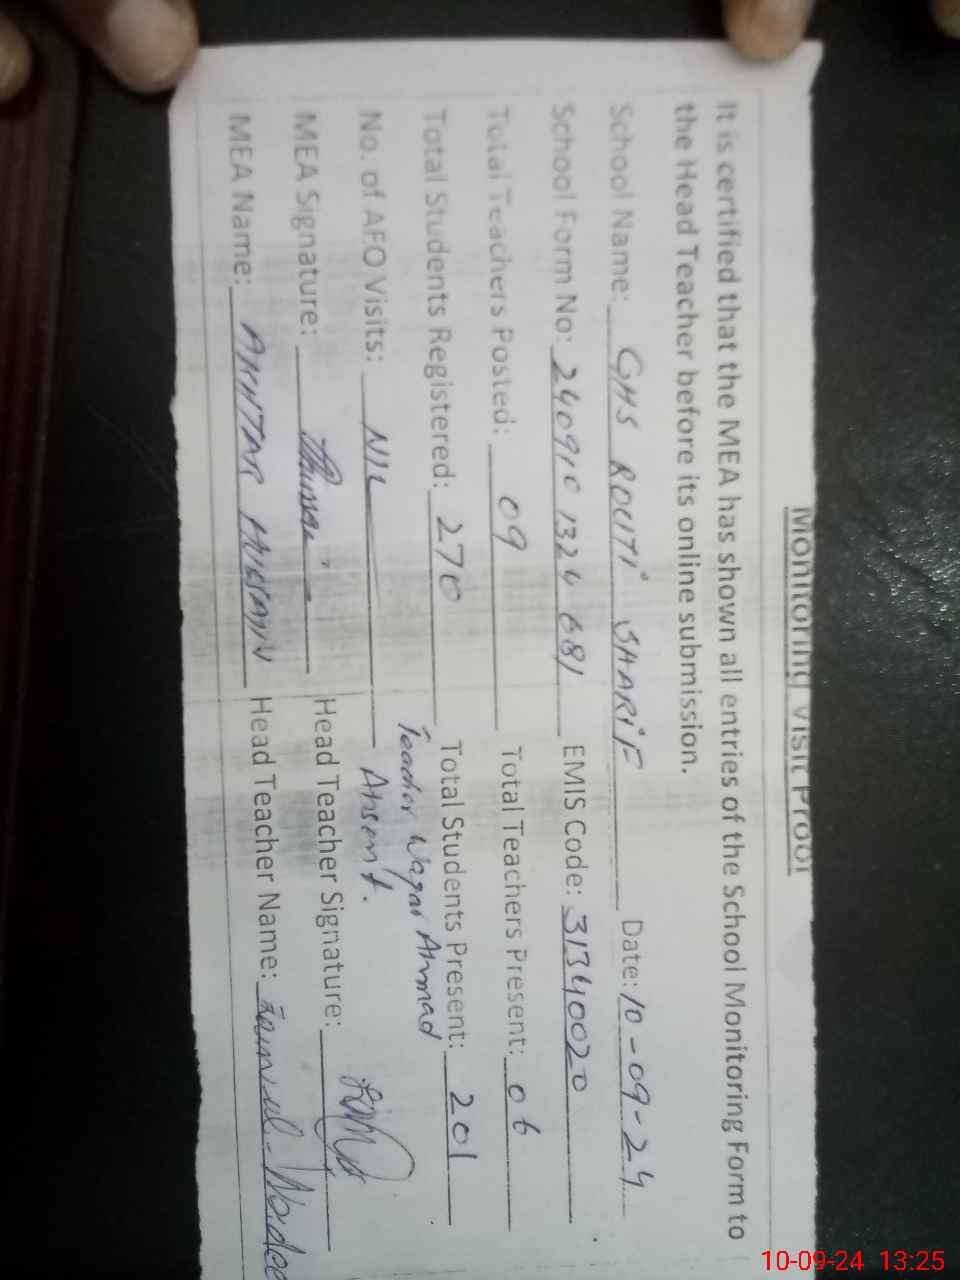 Monitoring Visit Proof
It is certified that the MEA has shown all entries of the School Monitoring Form to
the Head Teacher before its online submission.
School Name: GHS ROUTI SHARIF Date: 10-09-24
School Form No: 240910 1324 681 EMIS Code: 31340020
Total Teachers Posted: 09 Total Teachers Present: 06
Total Students Registered: 270 Total Students Present: 201
Teacher Waqar Ahmad
No. of AEO Visits: NIL Absent.
MEA Signature: Head Teacher Signature:
MEA Name: AKHTAR HUSSAIN Head Teacher Name:
10-09-24 13:25